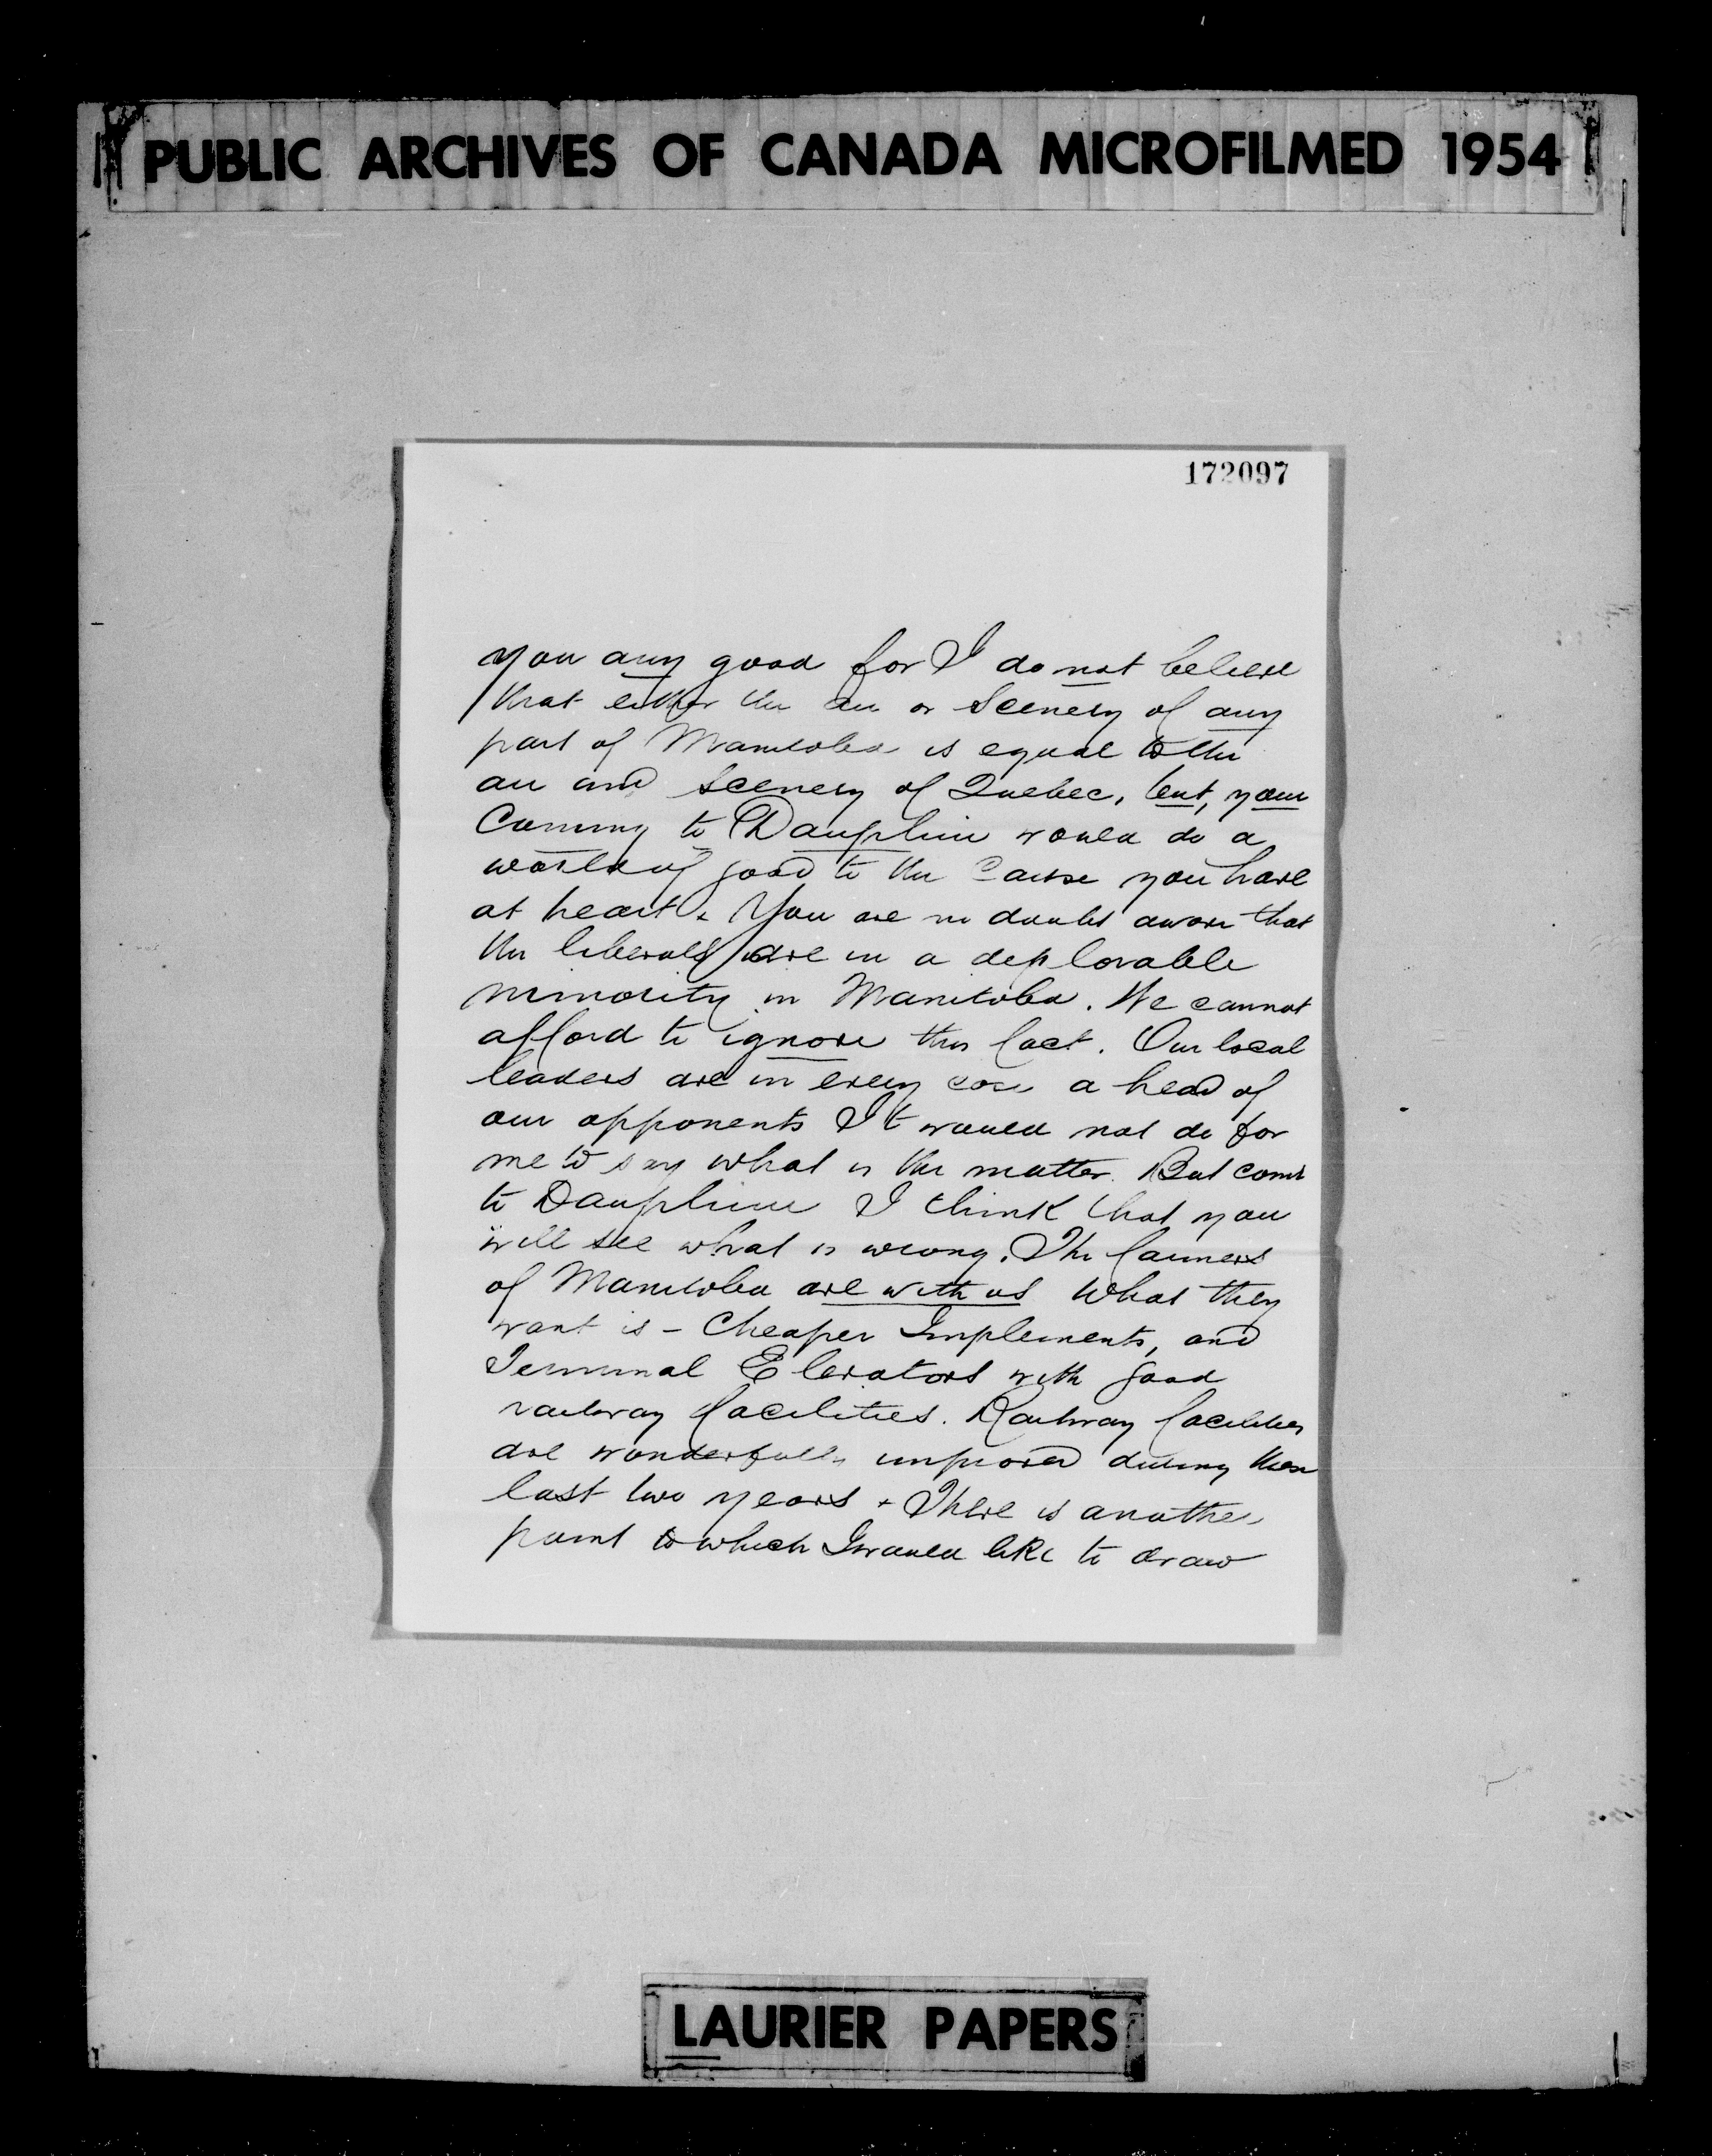 PUBLIC ARCHIVES OF CANADA MICROFILMED 1954
172097
you any good for I do not believe
that either the air or scenery of any
part of Manitoba is equal to the
air and scenery of Quebec, but, your
Coming to Dauphin would do a
world of good to the Cause you have
at heart. You are no doubt aware that
the liberals are in a deplorable
minority in Manitoba. We cannot
afford to ignore this fact. Our local
leaders are in every case a head of
our opponents It would not do for
me to say what is the matter. But come
to Dauphin I think that you
will see what is wrong. The farmers
of Manitoba are with us What they
want is - Cheaper Implements, and
Terminal Elevators with good
railway facilities. Railway facilities
are wonderfully improved during these
last two years + There is another
point to which I would like to draw
LAURIER PAPERS